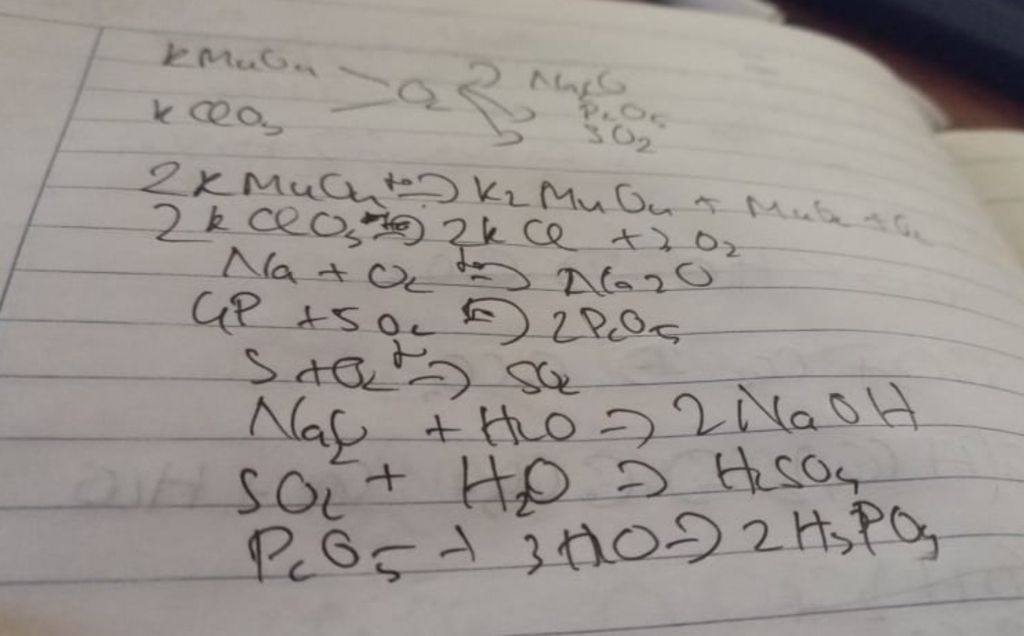 KMnO4 > O2 Na2O
KClO3 P2O5
SO2
2KMnO4 to=> K2MnO4 + MnO2 + O2
2KClO3 to=> 2KCl + 3O2
Na + O2 to=> Na2O
4P + 5O2 => 2P2O5
S + O2 to=> SO2
Na2O + H2O => 2NaOH
SO2 + H2O => H2SO3
P2O5 + 3H2O => 2H3PO3